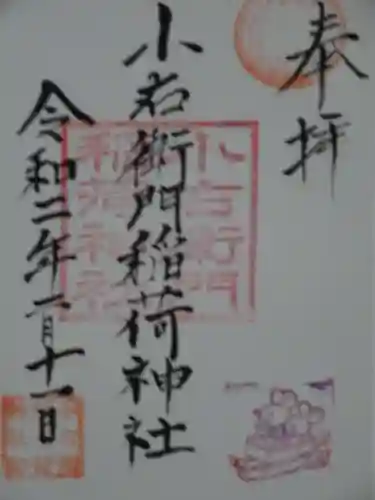 奉拝
小右衛門稲荷神社
令和二年一月十一日
小右衛門
稲荷神社